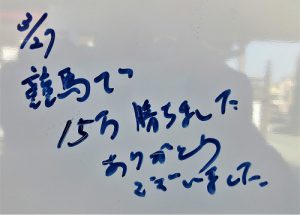 3/27
競馬で
15万 勝ちました
ありがとう
ございました。